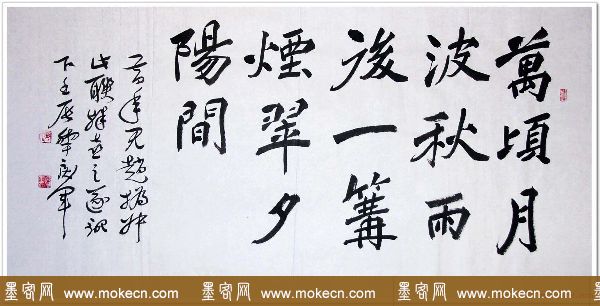 萬頃月
波秋雨
後一篝
煙翠夕
陽間
昔年見趙撝叔
此聯喜之遂記
下壬辰軍
墨客网 www.mokecn.com 墨客网 www.mokecn.com 墨客网 www.mokecn.com 墨客网